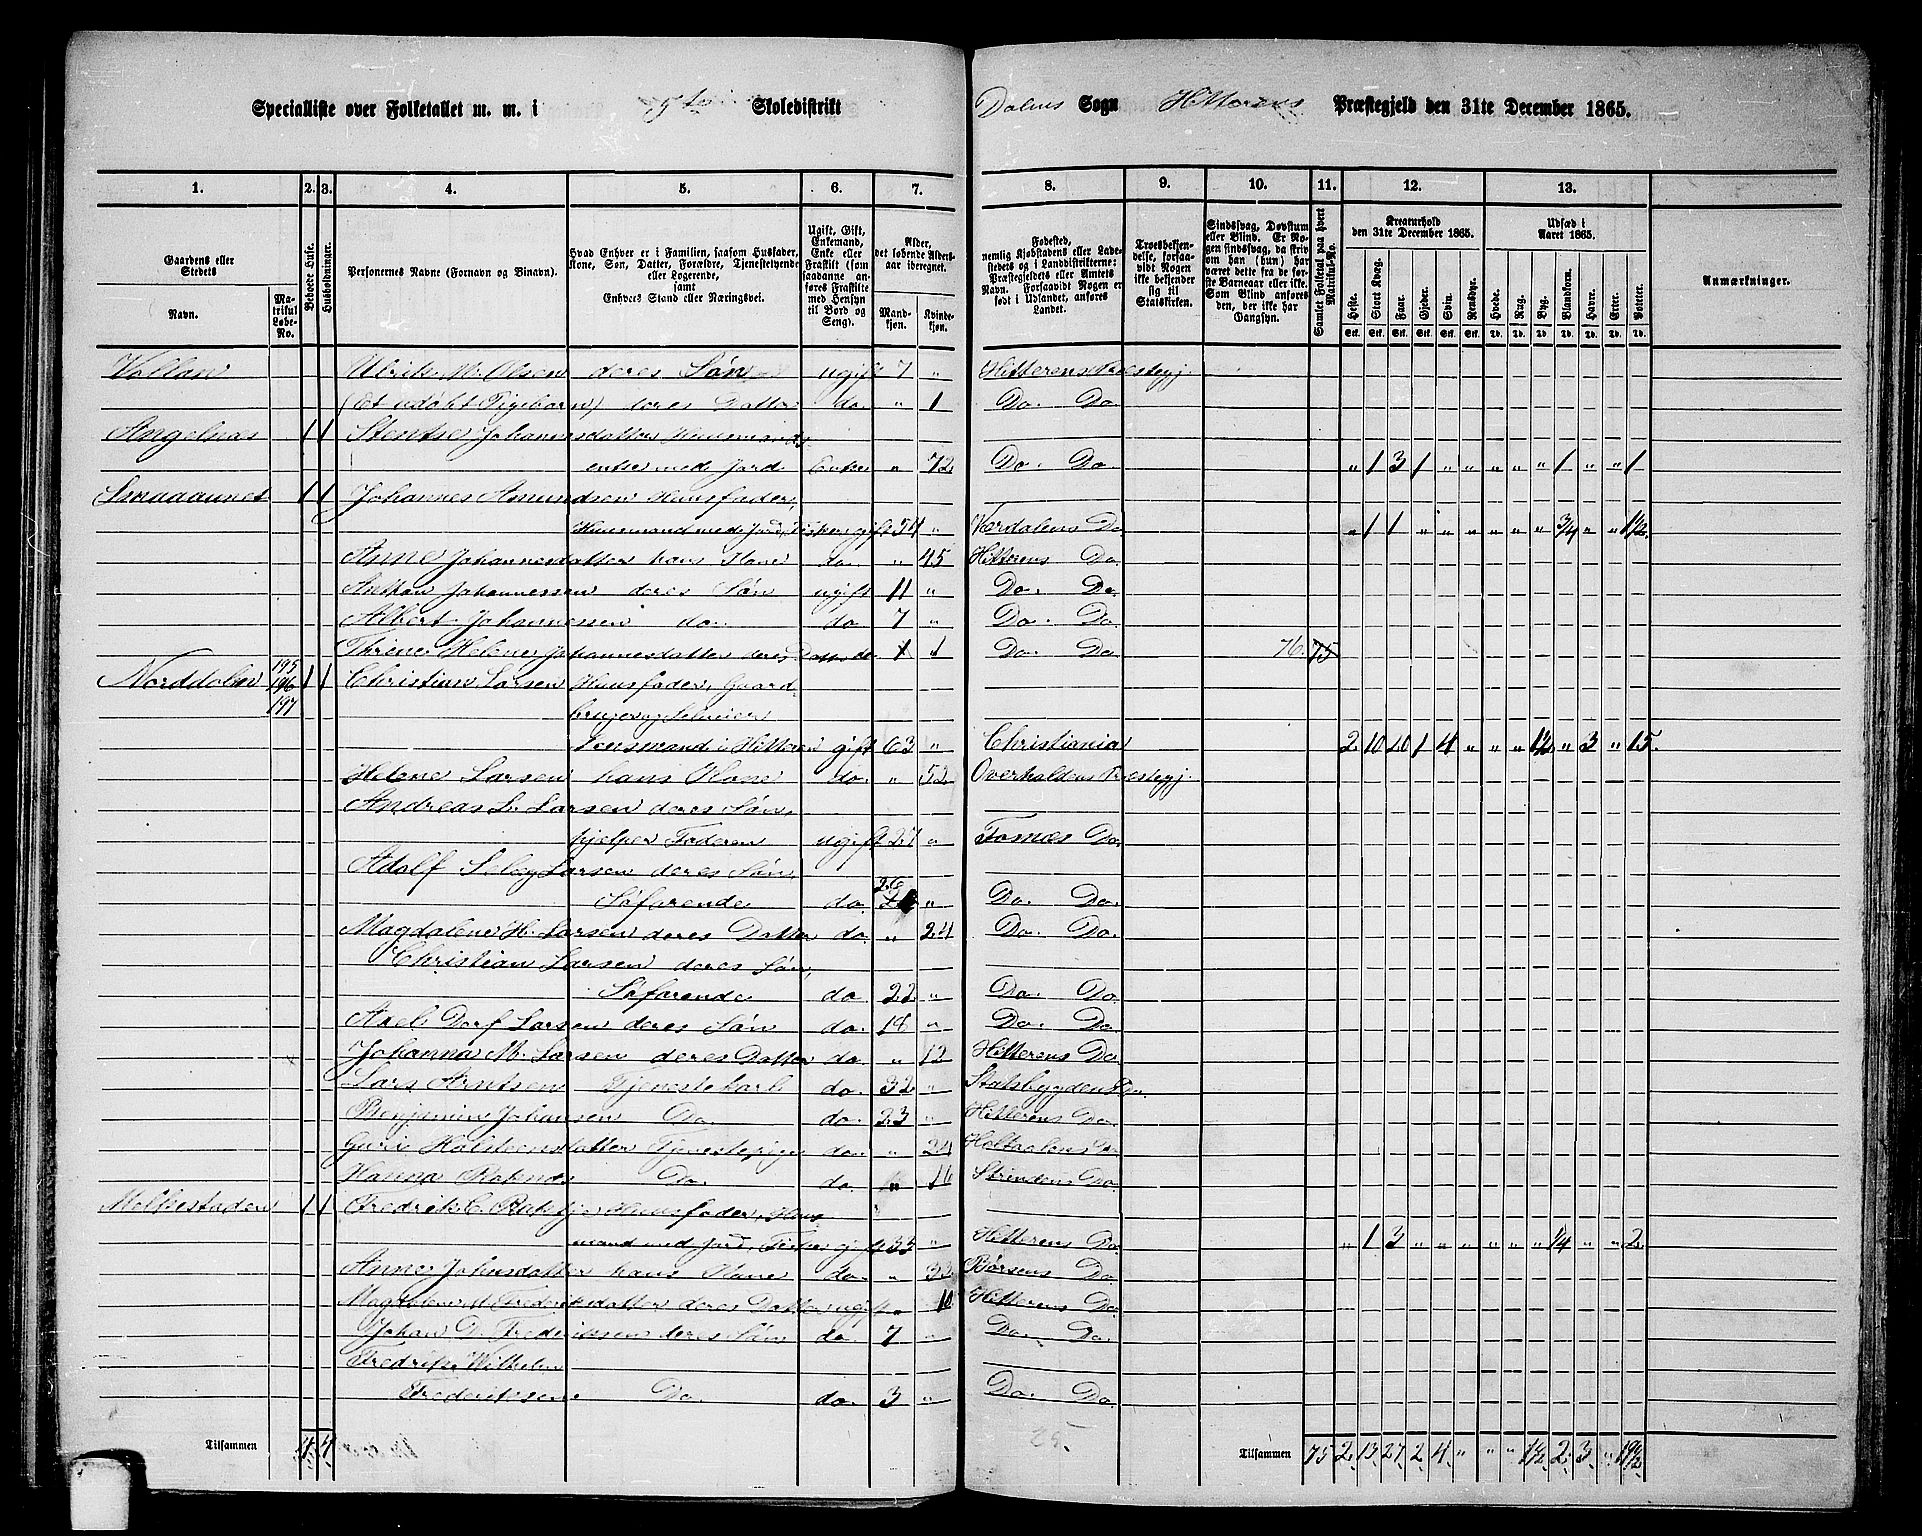 Specialliste over Folketallet m. m. i 5te Skoledistrikt Dolms Sogn Hitterens Præstegjeld den 31te December 1865.
1. 2. 3. 4. 5. 6. 7. 8. 9. 10. 11. 12. 13.
Gaardens eller Stedets Navn. Matrikul Løbe-No. Beboede Huse. Husholdninger. Personernes Navne (Fornavn og Binavn).
Hvad Enhver er i Familien, saasom Husfader, Kone, Søn, Datter, Forældre, Tjenestetyende eller Logerende, samt Enhvers Stand eller Næringsvei.
Ugift, Gift, Enkemand, Enke eller Fraskilt (som saadanne anføres Fraskilte med Hensyn til Bord og Seng).
Alder, det løbende Aldersaar iberegnet. Mandkjøn. Kvindekjøn.
Fødested, nemlig Kjøbstadens eller Ladestedets og i Landdistrikterne: Præstegjeldets eller Amtets Navn. Forsaavidt Nogen er født i Udlandet, anføres Landet.
Troesbekjendelse, forsaavidt Nogen ikke bekjender sig til Statskirken.
Sindssvag, Døvstum eller Blind. Er Nogen sindssvag, da skrives om han (hun) har været dette fra de første Barneaar eller ikke. Som Blind anføres den, der ikke har Gangsyn.
Samlet Folketal paa hvert Matrikul-No.
Kreaturhold den 31te December 1865. Heste. Stort Kvæg. Faar. Gjeder. Svin. Rensdyr.
Udsæd i Aaret 1865. Hvede. Rug. Byg. Blandkorn. Havre. Erter. Poteter.
Anmærkninger.
Vollan Ulrik M. Olsen deres Søn ugift 7 " Hitterens Præstegj.
(Et udøbt Pigebarn) deres Datter do. " 1 Do. Do.
Angelnæs 1 1 Johannesdatter Huusmands
enke med Jord Enke " 72 Do. Do. " 1 3 1 " " " " " 1 " " 1
Smaaaunet 1 1 Johannes Amundsen Huusfader,
Huusmand med Jord, Fisker gift 54 " Værdalens Do. " 1 1 " " " " " " 3/4 " " 1 1/2
Anne Johannesdatter hans Kone do. " 45 Hitterens Do.
Anthon Johannessen deres Søn ugift 11 " Do. Do.
Albert Johannessen do. do 7 " Do. Do.
Helene Johannesdatter deres Datter do. 1 Do. Do. 76. 75
Norddolm 195 196 197 1 1 Christian Larsen Huusfader, Gaard-
bruger og
Lensmand i Hitteren gift 63 " Christiania 2 10 20 1 4 " " " 1 1/2 " 3 " 15.
Helene Larsen hans Kone do. " 52 Overhaldens Præstegj.
Andreas L. Larsen deres Søn,
hjelper Faderen ugift 27 " Fosnæs Do.
Adolf Larsen deres Søn,
Søfarende do. 26 " Do. Do.
Magdalene H. Larsen deres Datter do. " 24 Do. Do.
Christian Larsen deres Søn,
Søfarende do. 22 " Do. Do.
Axel Larsen deres Søn do. 18 " Do. Do.
Johanna M. Larsen deres Datter do. " 12 Hitterens Do.
Lars Arntsen Tjenestekarl do. 32 " Stadsbygdens Do.
Benjamin Johansen Do. do. 23 " Hitterens Do.
Guri Holstensdatter Tjenestepige do. " 24 Holtaalens Do.
Hanna Do. do. " 16 Strindens Do.
Melkestaden 1 1 Fredrik C. Huusfader, Huus-
mand med Jord, Fisker gift 33 " Hitterens Do. " 1 3 " " " " " " 1/4 " " 2
Anne Johnsdatter hans Kone do. " 32 Børsens Do.
Magdalene M. Frederiksdatter deres Datter ugift " 10 Hitterens Do.
Johan D. Frederiksen deres Søn do. 7 " Do. Do.
Fredrik Wilhelm
Frederiksen Do. do. 3 " Do. Do.
Tilsammen 4 4 25. Tilsammen 75 2 13 27 2 4 " " " 1 1/2 2 3 " 19 1/2